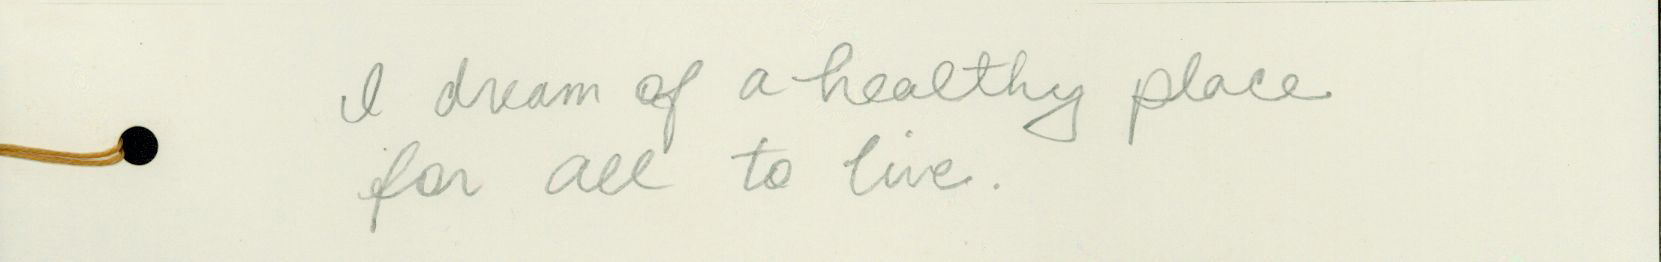 I dream of a healthy place
for all to live.